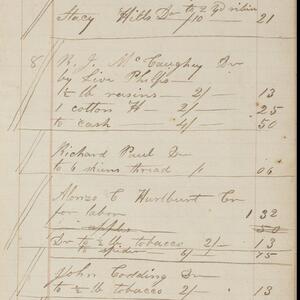 Stacy Hills Dr to 2 yd ribin /10 21
8 R. J. McCaughey Dr
by Live Phelps
½ lb raisins 2/ 13
1 cotton H 2/ 25
to cash 4/ 50
Richard Paul Dr
to 6 skeins thread /1 06
Alonzo C Hurlburt Cr
for labor 1 32
apples 50
Dr to ½ lb tobacco 2/ 13
6/ 75
John Codding Dr
to ½ lb tobacco 2/ 13